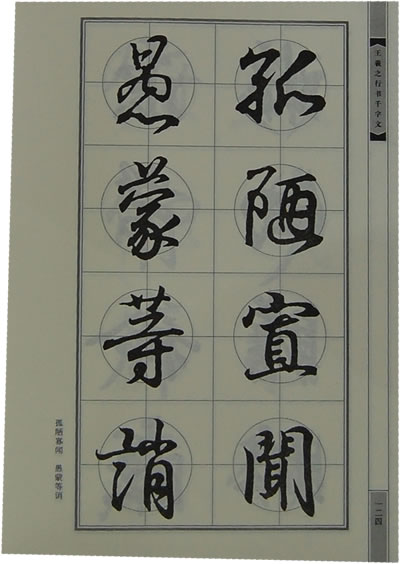 王羲之行书千字文
一二四
孤陋寡聞
愚蒙等誚
孤陋寡闻 愚蒙等诮